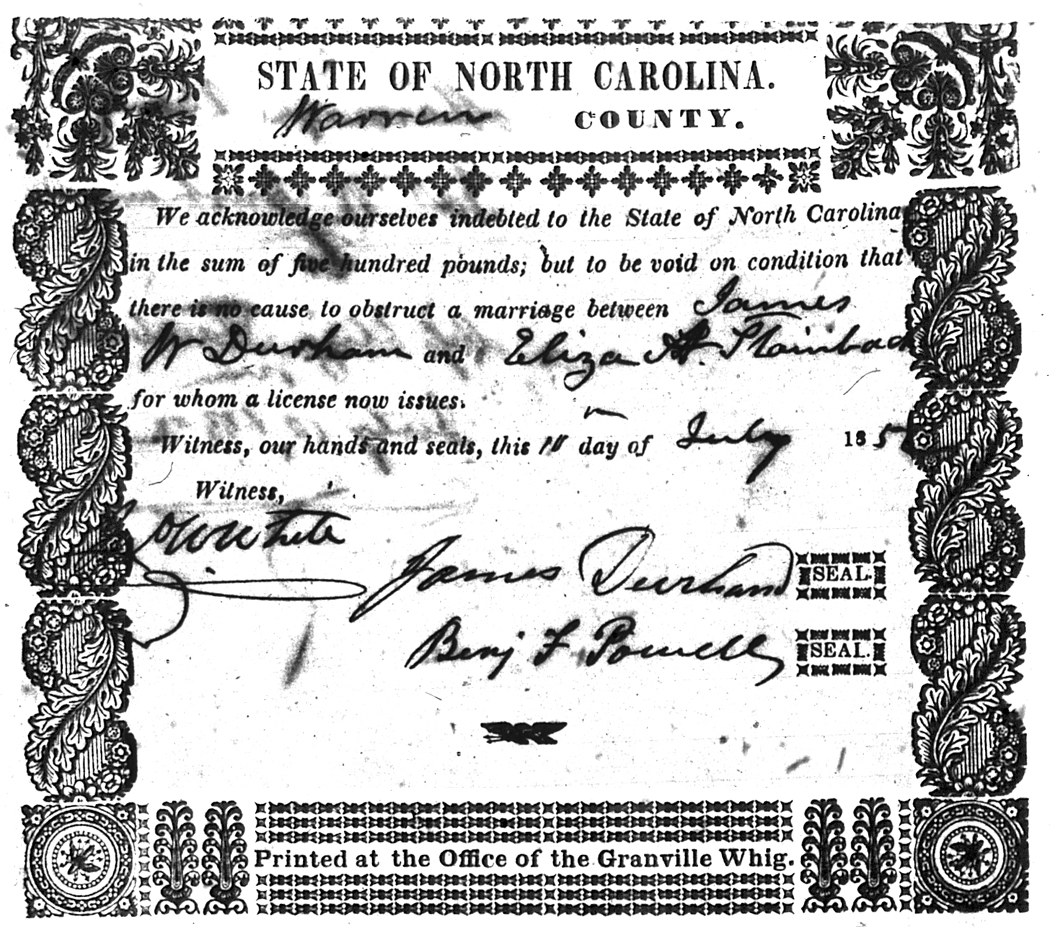 STATE OF NORTH CAROLINA.
Warren COUNTY.
We acknowledge ourselves indebted to the State of North Carolina
in the sum of five hundred pounds; but to be void on condition that
there is no cause to obstruct a marriage between James
W Durham and Eliza A. Stainback
for whom a license now issues.
Witness, our hands and seals, this day of July 185
Witness,
White
James Durham SEAL.
Benj F Powell SEAL.
Printed at the Office of the Granville Whig.